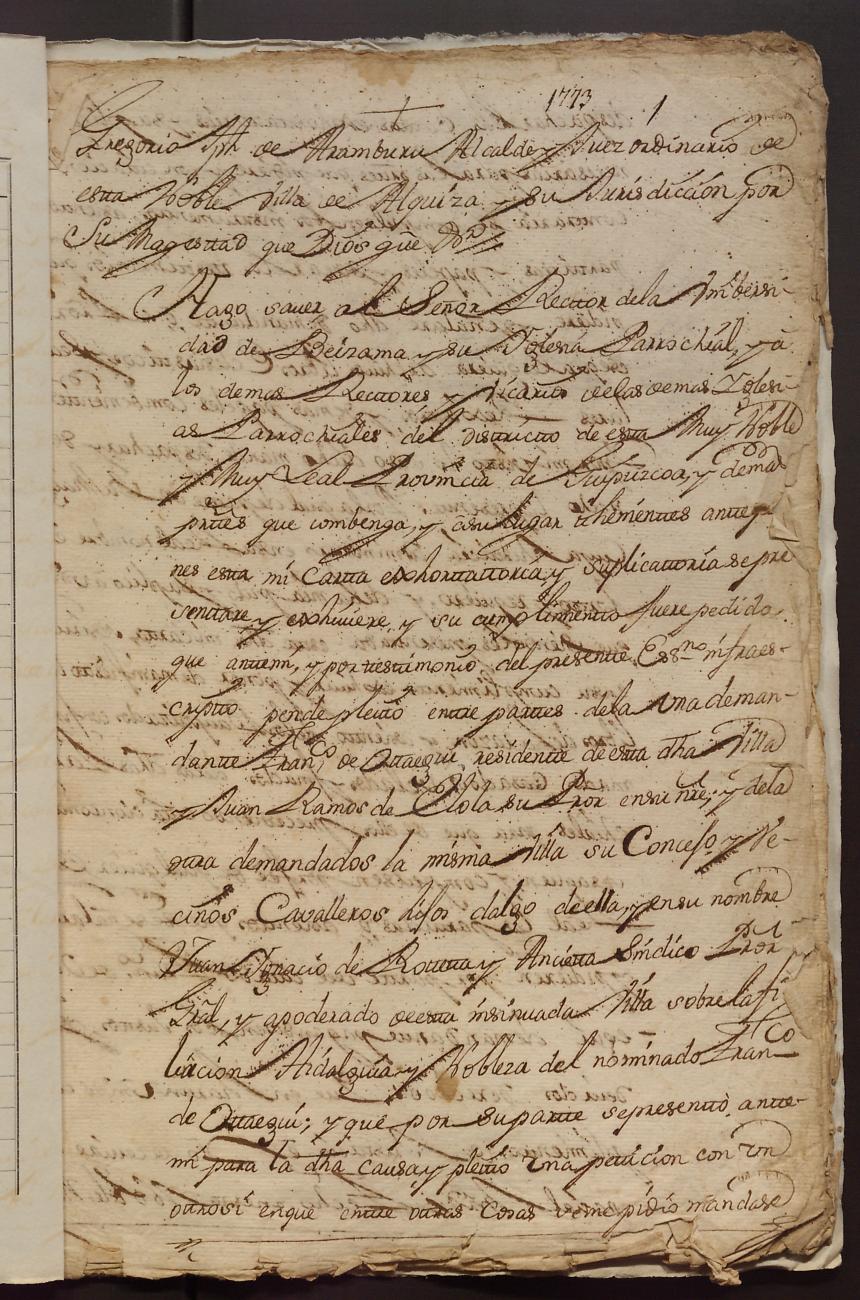 1773 1
Gregorio Jph de Aramburu Alcalde y Juez ordinario de
esta Noble Villa de Alquiza y su Jurisdiccion por
Su Magesttad que Dios gue &ª
Hago saver al Señor Rector dela Vnibersi-
dad de Beizama y su Yglesia Parrochial, y a
los demas Rectores y Vicarios delas demas Yglesi-
as Parrochiales del districtto de esta Muy Noble
y Muy Leal Provincia de Guipuzcoa, y demas
parttes que combenga, y a su lugar thenienttes antte qº
nes esta mi Cartta exhorttattoria y suplicattoria se pre
senttare y exhiviere y su cumplimientto fuere pedido,
que antemi, y por ttesttimonio del presentte Essno infraes-
cripto pende pleitto entre parttes dela vna deman-
dantte Franco de Ottaegui residentte de esta dha Villa
y Juan Ramos de Elola su Pror en su nre; y dela
ottra demandados la misma Villa su Concejo y Ve-
cinos Cavalleros hijos dalgo de ella, y en su nombre
Juan Ygnacio de Rouetta y Ancietta Sindico Pror
Gral, y apoderado de esta insinuada Villa sobre la fi
liacion Hidalguia y Nobleza del nominado Franco
de Ottaegui; y que por su partte se presentto antte-
mi para la dha causa, y pleitto vna peticion con vn
ottrosi en que entre ottras cosas se me pidio mandase